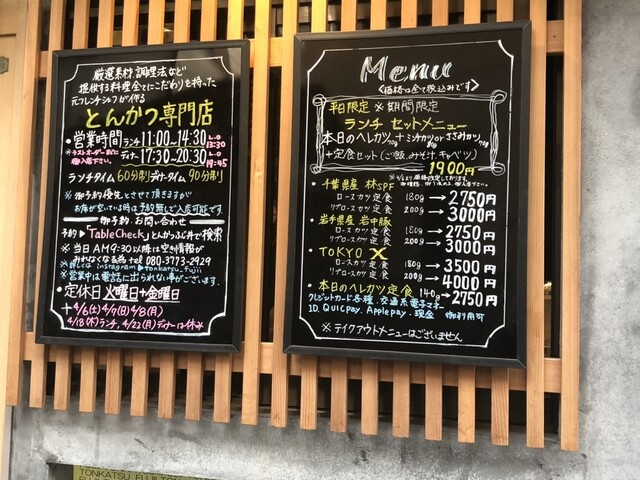 厳選素材、調理法など
提供する料理全てにこだわりを持った
元フレンチシェフが作る
とんかつ専門店
・営業時間 ランチ 11:00〜14:30 L.O 13:30
ディナー 17:30-20:30 L.O 19:45
ランチタイム 60分制 ディナータイム 90分制
※御予約優先とさせて頂きますが
お席が空いている時は予約無しで入店可能です。
御予約、お問い合わせ
予約▶「TableCheck」とんかつふじ井で検索
※当日AM9:30以降は空き情報が
みれなくなる為 tel 080-3773-2929
※詳しくは instagram▶tonkatsu_fujii
※営業中は電話に出られない事がございます。
・定休日 火曜日+金曜日
+4/6(土) 4/7(日) 4/8(月)
4/18(木)ランチ、4/22(月)ディナーは休み
Menu
<価格は全て税込みです>
平日限定 ※期間限定
ランチ セットメニュー
本日のヘレカツ+ミンチカツ or ささみカツ
+定食セット(ご飯、みそ汁、キャベツ)
1900円
・千葉県産 林SPF
ロースカツ定食 180g → 2750円
リブロースカツ定食 200g → 3000円
・岩手県産 岩中豚
ロースカツ定食 180g → 2750円
リブロースカツ定食 200g → 3000円
・TOKYO X
ロースカツ定食 180g → 3500円
リブロースカツ定食 200g → 4000円
・本日のヘレカツ定食 140g → 2750円
クレジットカード各種、交通系電子マネー
ID、QUICpay、Applepay、現金 御利用可
※テイクアウトメニューはございません
TONKATSU FUJII